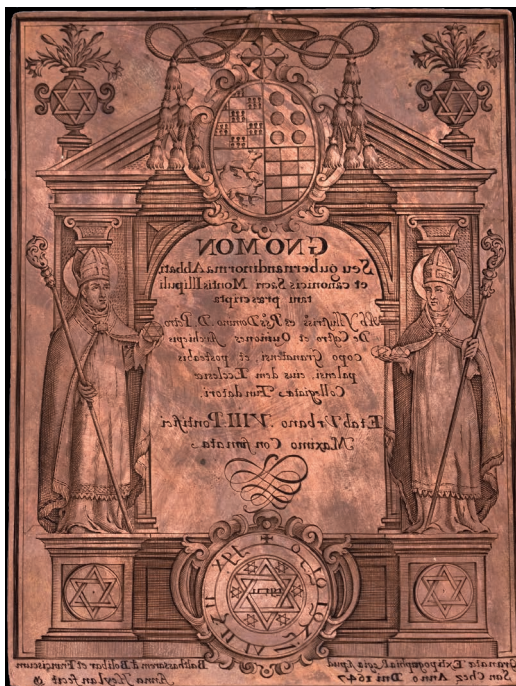 GNOMON
Seu gubernandi norma Abbati
et canonicis Sacri Montis Illipuli
tani præscripta
Ab Yllustriss et Domino D. Petro
De Castro et Quinones Archiepis
copo Granatensi, et postea his
palensi, eius dem Ecclesiæ
Collegiatæ Fundatori.
Et ab Vrbano .VIII. Pontifici
Maximo Confirmata
Granatæ Ex tipographia Regia Apud Balthasarem d Bolibar et Franciscum
San Chez Anno Dni 1647 Anna Heylan fecit